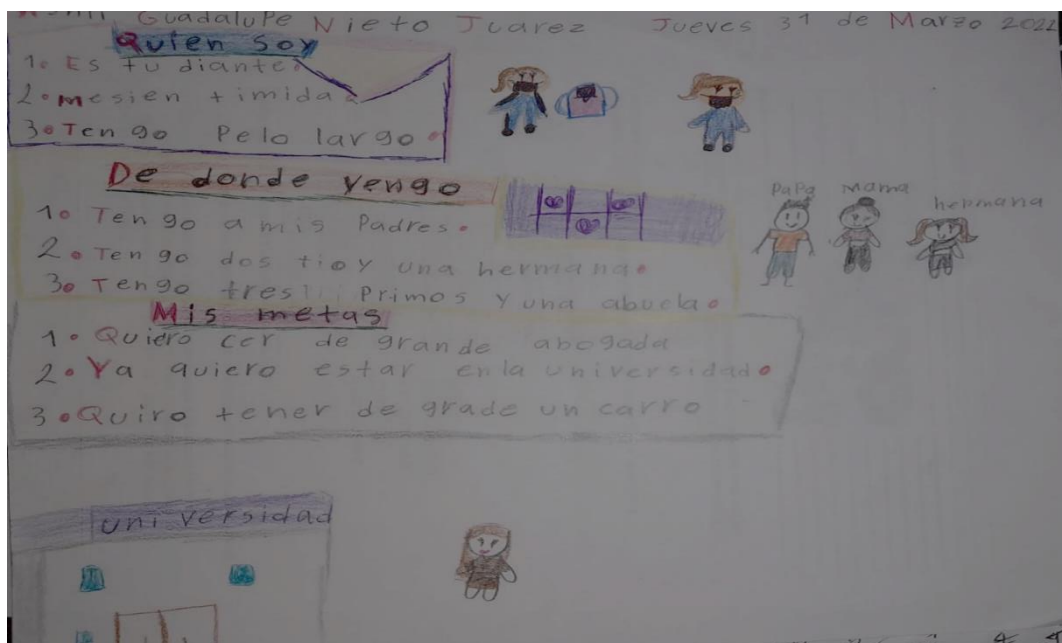 Guadalupe Nieto Juarez Jueves 31 de Marzo 2022
Quien soy
1. Es tu diante.
2. mesien timida.
3. Tengo Pelo largo.
De donde vengo
1. Tengo a mis Padres.
2. Tengo dos tioy una hermana.
3. Tengo tres Primos y una abuela.
PaPa Mama hermana
Mis metas
1. Quiero cer de grande abogada
2. Ya quiero estar en la universidad.
3. Quiro tener de grade un carro
universidad